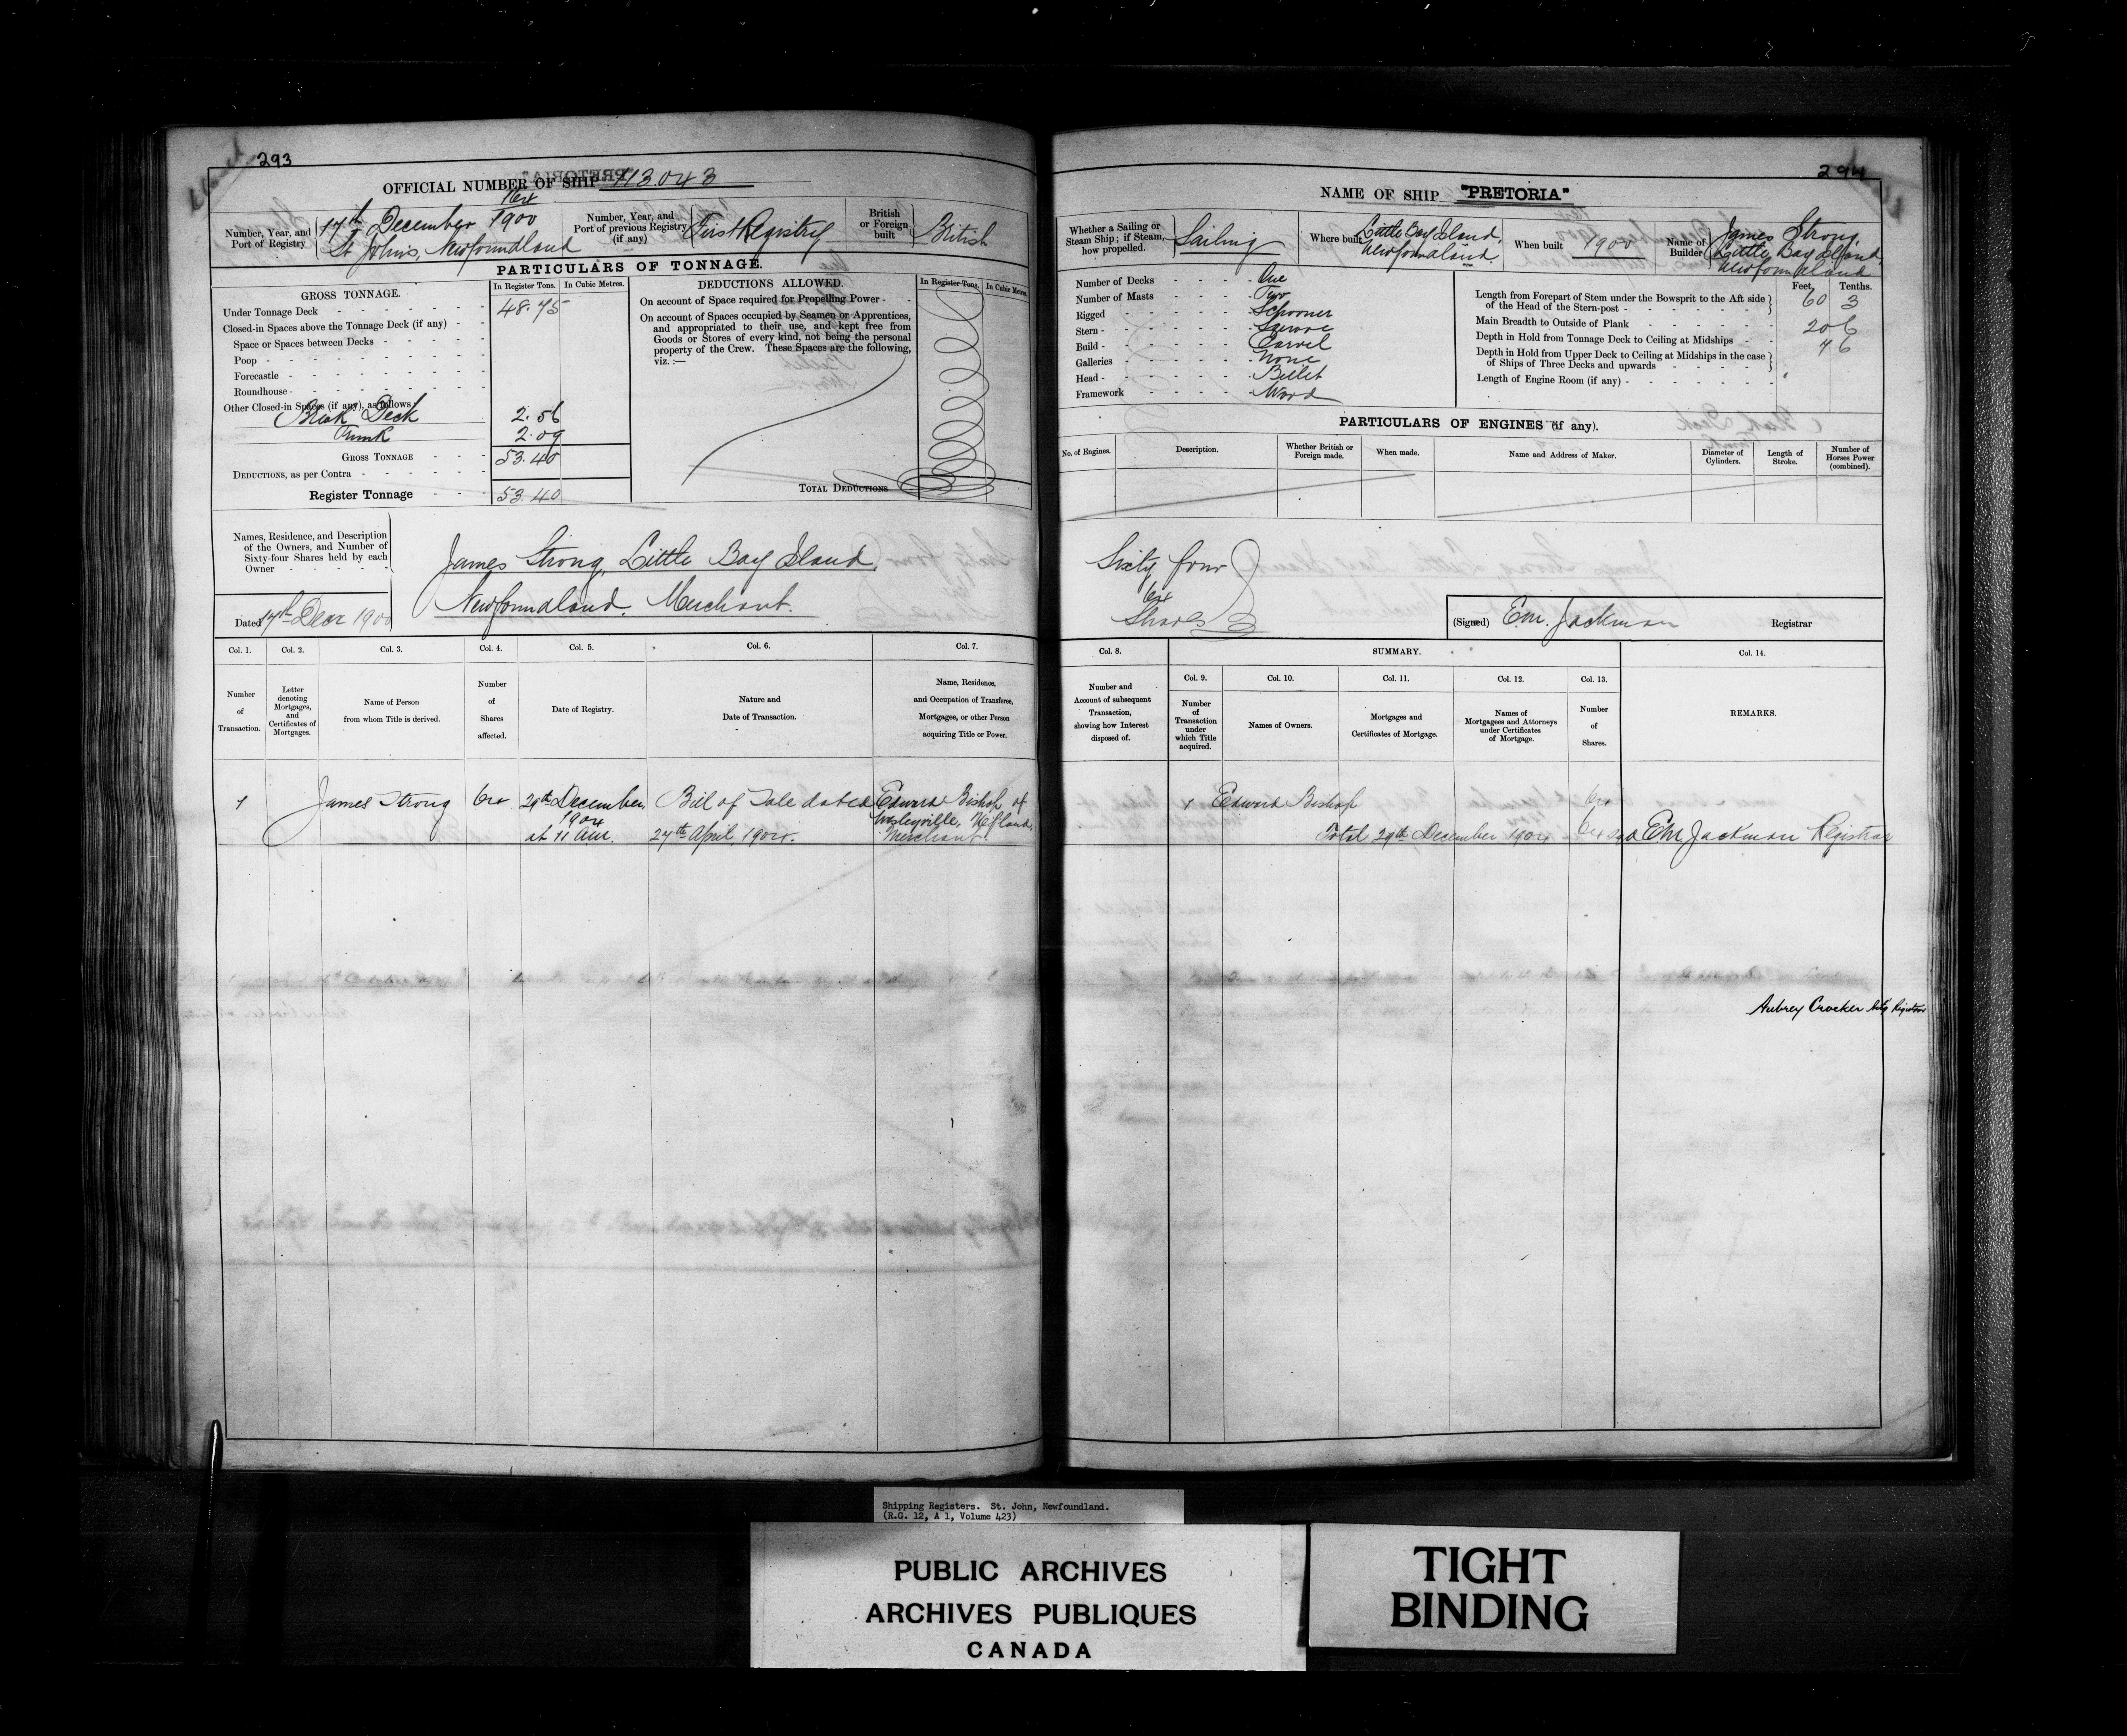 293
OFFICIAL NUMBER OF SHIP 113.043
Number, Year, and Port of Registry
17th December 1900
St Johns, Newfoundland
Number, Year, and Port of previous Registry (if any)
First Registry
British or Foreign built
British
PARTICULARS OF TONNAGE.
GROSS TONNAGE.
In Register Tons.
In Cubic Metres.
Under Tonnage Deck 48.75
Closed-in Spaces above the Tonnage Deck (if any)
Space or Spaces between Decks
Poop
Forecastle
Roundhouse
Other Closed-in Spaces (if any), as follows
Break Deck 2.56
Trunk 2.09
GROSS TONNAGE 53.40
DEDUCTIONS, as per Contra
Register Tonnage 53.40
DEDUCTIONS ALLOWED.
In Register Tons.
In Cubic Metres.
On account of Space required for Propelling Power
On account of Spaces occupied by Seamen or Apprentices,
and appropriated to their use, and kept free from
Goods or Stores of every kind, not being the personal
property of the Crew. These Spaces are the following,
viz. :—
TOTAL DEDUCTIONS
Names, Residence, and Description
of the Owners, and Number of
Sixty-four Shares held by each
Owner
James Strong, Little Bay Island,
Newfoundland. Merchant.
Dated 17th Decr 1900
Col. 1.
Col. 2.
Col. 3.
Col. 4.
Col. 5.
Col. 6.
Col. 7.
Number of Transaction.
Letter denoting Mortgages, and Certificates of Mortgages.
Name of Person from whom Title is derived.
Number of Shares affected.
Date of Registry.
Nature and Date of Transaction.
Name, Residence, and Occupation of Transferee, Mortgagee, or other Person acquiring Title or Power.
1 James Strong 64 29th December, Bill of Sale dated Edward Bishop of
1904 Wesleyville, Nfland,
at 11 am. 27th April, 1904. Merchant.
294
NAME OF SHIP "PRETORIA"
Whether a Sailing or Steam Ship; if Steam, how propelled.
Sailing
Where built
Little Bay Island,
Newfoundland.
When built
1900
Name of Builder
James Strong,
Little Bay Island,
Newfoundland
Number of Decks One
Number of Masts Two
Rigged Schooner
Stern Square
Build Carvel
Galleries None
Head Billet
Framework Wood
Feet. Tenths.
Length from Forepart of Stem under the Bowsprit to the Aft side of the Head of the Stern-post 60 3
Main Breadth to Outside of Plank 20 6
Depth in Hold from Tonnage Deck to Ceiling at Midships 7 6
Depth in Hold from Upper Deck to Ceiling at Midships in the case of Ships of Three Decks and upwards
Length of Engine Room (if any)
PARTICULARS OF ENGINES (if any).
No. of Engines.
Description.
Whether British or Foreign made.
When made.
Name and Address of Maker.
Diameter of Cylinders.
Length of Stroke.
Number of Horses Power (combined).
Sixty four
64
Shares
(Signed) Em. Jackman Registrar
Col. 8.
SUMMARY.
Col. 14.
Col. 9.
Col. 10.
Col. 11.
Col. 12.
Col. 13.
Number and Account of subsequent Transaction, showing how Interest disposed of.
Number of Transaction under which Title acquired.
Names of Owners.
Mortgages and Certificates of Mortgage.
Names of Mortgagees and Attorneys under Certificates of Mortgage.
Number of Shares.
REMARKS.
1 Edward Bishop 64
Total 29th December 1904 64 sgd Em Jackman Registrar
Aubrey Crocker Actg Registrar
Shipping Registers. St. John, Newfoundland.
(R.G. 12, A 1, Volume 423)
PUBLIC ARCHIVES
ARCHIVES PUBLIQUES
CANADA
TIGHT
BINDING